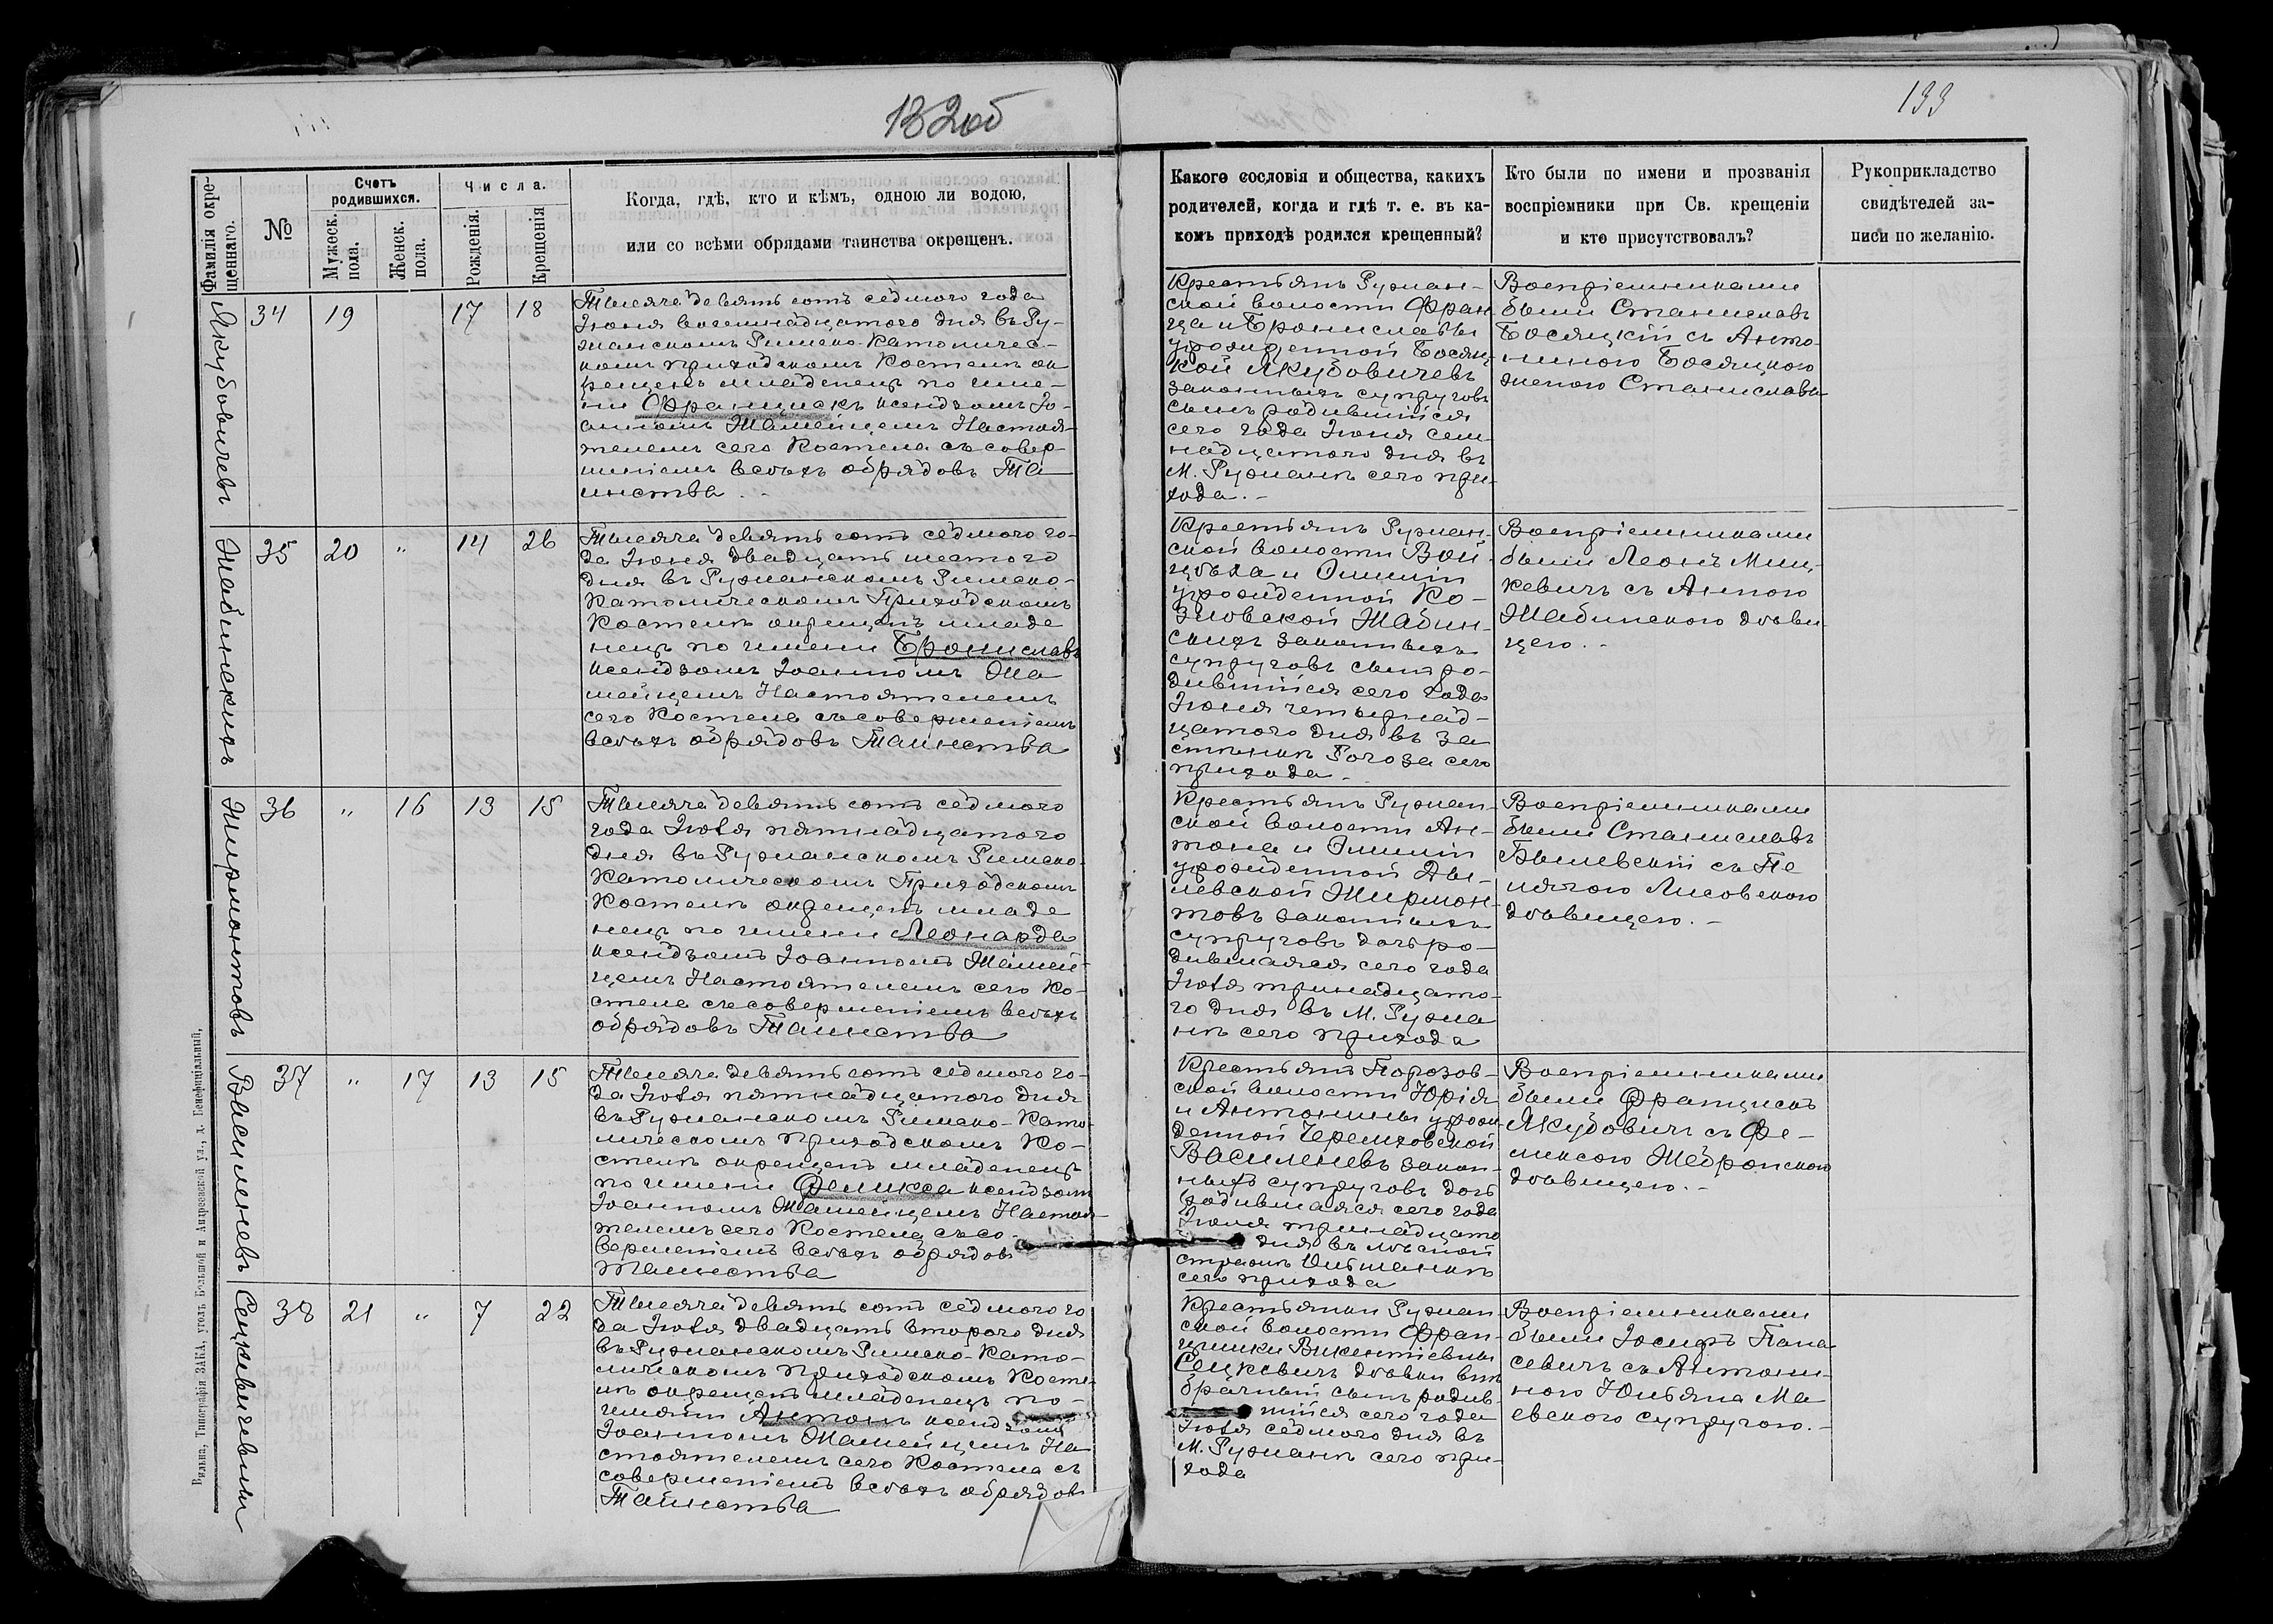 132об
133
Фамилія окре-
щеннаго.
№
Счетъ
родившихся.
Мужеск.
пола.
Женск.
пола.
Числа.
Рожденія.
Крещенія
Когда, гдѣ, кто и кѣмъ, одною ли водою,
или со всѣми обрядами таинства окрещенъ.
Какого сословія и общества, какихъ
родителей, когда и гдѣ т. е. въ ка-
комъ приходѣ родился крещенный?
Кто были по имени и прозванія
воспріемники при Св. крещеніи
и кто присутствовалъ?
Рукоприкладство
свидѣтелей за-
писи по желанію.
Якубовичевъ
34 19 17 18
Тысяча девять сотъ седмого года
Іюня восемнадцатого дня въ Ру-
жанскомъ Римско-Католичес-
комъ приходскомъ Костелѣ ок
рещенъ младенецъ по име-
ни Францискъ ксендзомъ Іо-
анномъ Жамейцемъ Настоя-
телемъ сего Костела съ совер-
шеніемъ всѣхъ обрядовъ Та
инства.-
Крестьянъ Ружан-
ской волости Фран
ца и Брониславы
урожденной Босяц-
кой Якубовичевъ
законныхъ супруговъ
сынъ родившійся
сего года Іюня сем-
надцатого дня въ
М. Ружанѣ сего при-
хода.-
Воспріемниками
были Станиславъ
Босяцкій съ Анто-
ниною Босяцкого
женою Станислава
Жабинскихъ
35 20 " 14 26
Тысяча девять сотъ седмого го-
да Іюня двадцать шестого
дня въ Ружанскомъ Римско-
Католическомъ Приходскомъ
Костелѣ окрещенъ младе
нецъ по имени Брониславъ
ксендзомъ Іоанномъ Жа
мейцемъ Настоятелемъ
сего Костела съ совершеніемъ
всѣхъ обрядовъ Таинства
Крестьянъ Ружан-
ской волости Вой-
цѣха и Эмиліи
урожденной Ко-
зловской Жабин-
скихъ законныхъ
супруговъ сынъ ро-
дившійся сего года
Іюня четырнад-
цатого дня въ За
стѣнкѣ Рогоза сего
прихода.-
Воспріемниками
были Леонъ Миц-
кевичъ съ Анною
Жабинского дѣви
цею.-
Жирмонтовъ
36 " 16 13 15
Тысяча девять сотъ седмого
года Іюля пятнадцатого
дня въ Ружанскомъ Римско-
Католическомъ Приходскомъ
Костелѣ окрещенъ младе
нецъ по имени Леонарда
ксендзомъ Іоанномъ Жамей-
цемъ Настоятелемъ сего Ко-
стела съ совершеніемъ всѣхъ
обрядовъ Таинства
Крестьянъ Ружан-
ской волости Ан-
тона и Эмиліи
урожденной Ды-
левской Жирмон-
товъ законныхъ
супруговъ дочь ро-
дившаяся сего года
Іюля тринадцато-
го дня въ М. Ружа
нѣ сего прихода
Воспріемниками
были Станиславъ
Былевскій съ Пе
лягіою Лисовского
дѣвицею.-
Василевъ
37 " 17 13 15
Тысяча девять сотъ седмого го-
да Іюля пятнадцатого дня
въ Ружанскомъ Римско-Като-
лическомъ приходскомъ Ко-
стелѣ окрещенъ младенецъ
по имени Феликса ксендзомъ
Іоанномъ Жамейцемъ Настоя-
телемъ сего Костела съ со-
вершеніемъ всѣхъ обрядовъ
Таинства
Крестьянъ Порозов-
ской волости Юрія
и Антонины урож
денной Черемховской
Василевъ закон-
ныхъ супруговъ дочь
родившаяся сего года
Іюля тринадцато
дня въ лѣсной
стражѣ
сего прихода
Воспріемниками
были Францискъ
Якубовичъ съ Фе-
ликсою Жебровского
дѣвицею.-
Сецкевичевны
38 21 " 7 22
Тысяча девять сотъ седмого го
да Іюля двадцать второго дня
въ Ружанскомъ Римско-Като-
лическомъ приходскомъ Косте-
лѣ окрещенъ младенецъ по-
имени Антонъ ксендзомъ
Іоанномъ Жамейцемъ На
стоятелемъ сего Костела съ
совершеніемъ всѣхъ обрядовъ
Таинства
Крестьянки Ружан-
ской волости Фран-
цишки Викентіевны
Сецкевичъ дѣвки внѣ
брачный сынъ родив-
шійся сего года
Іюля седмого дня въ
М. Ружанѣ сего при-
хода
Воспріемниками
были Іосифъ Пана
севичъ съ Антони-
ною Юльяна Ма
евского супругою.-
Вильна, Типографія ЗАКА, уголъ Большой и Андреевской ул., д. Бенефиціальный.